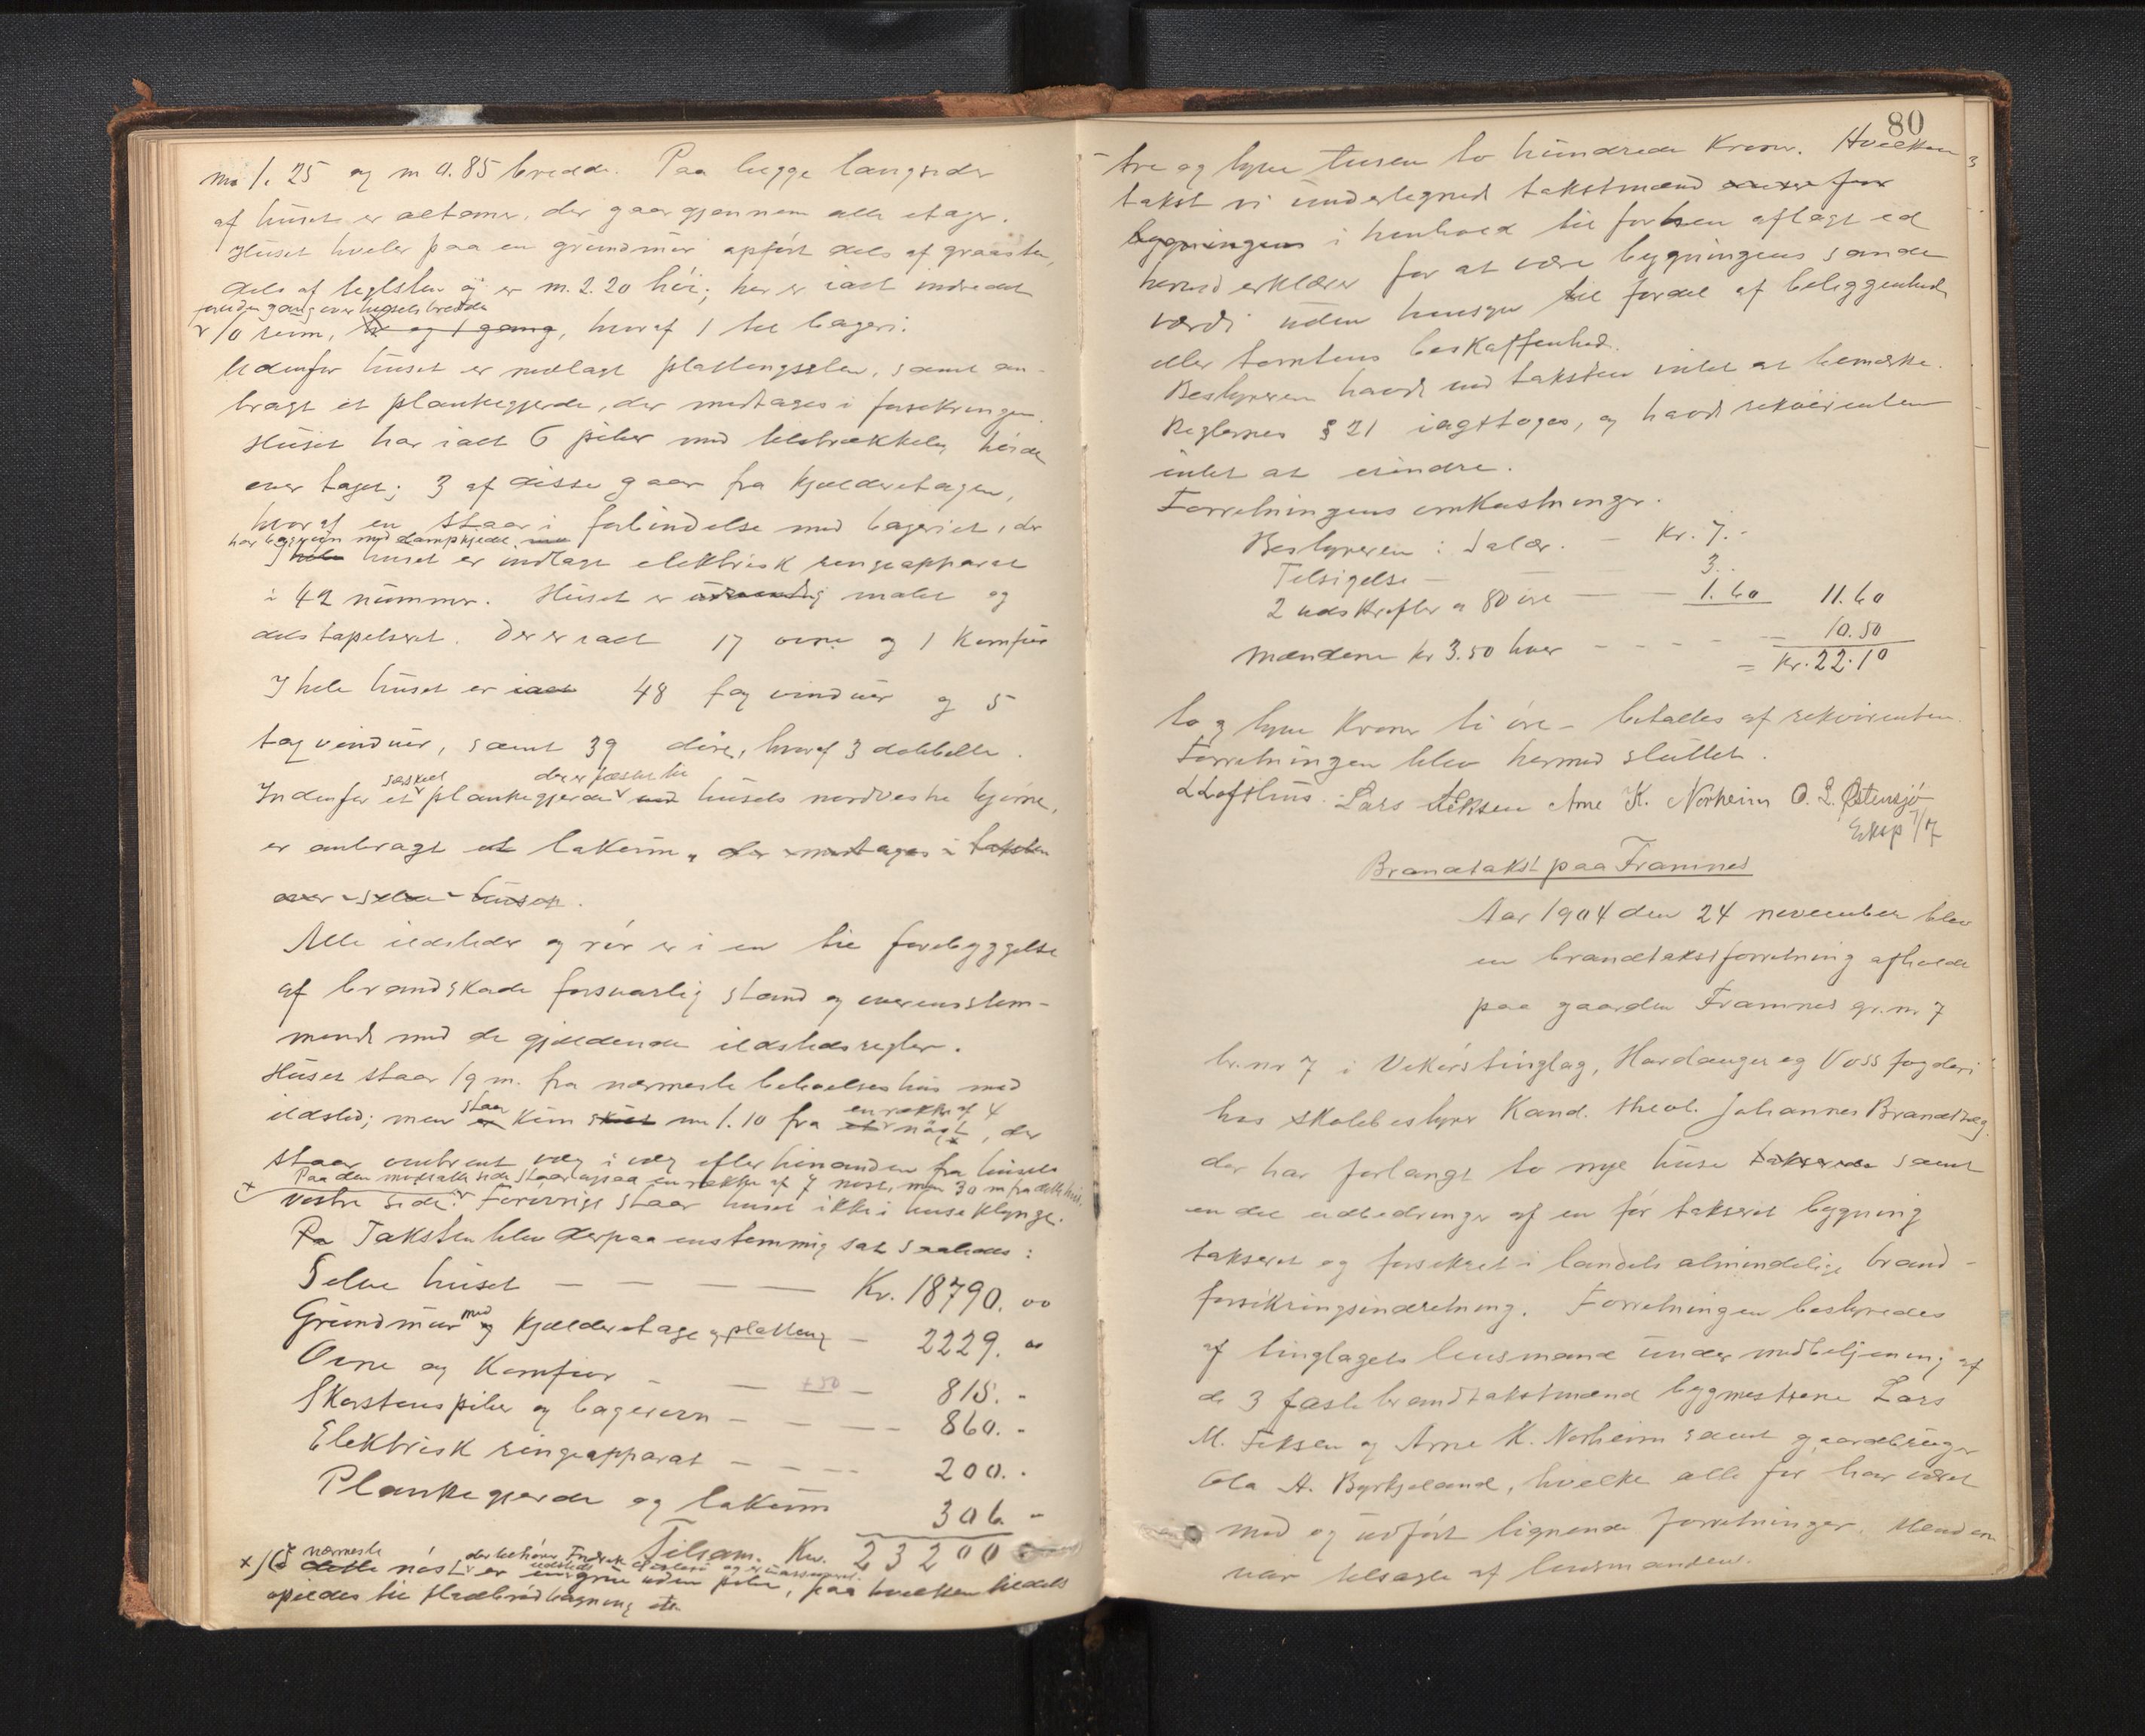 m. 1.25 og m 0.85 bredde. Paa begge langsider
af huset er altaner, der gaar gjennem alle etager.
Huset hviler paa en grundmur opført dels af graasten,
dels af teglsten og er m. 2.20 høi; her er ialt indredet
foruden gang over husets bredde
10 rum, og 1 gang, hvoraf 1 til bageri.
Udenfor huset er nedlagt plattingsslen, samt an-
bragt et plankegjerde, der medtages i forsikringen.
Huset har ialt 6 piber med tilstrækkelig høide
over taget; 3 af disse gaar fra kjælderetagen,
hvoraf en staar i forbindelse med bageriet, der
har bagerovn med dampkjedel
I hele huset er indlagt elektrisk ringeapparat
i 42 nummer. Huset er udvendig malet og
dels tapetseret. Der er ialt 17 ovne og 1 komfur
I hele huset er ialt 48 fag vinduer og 5
tagvinduer, samt 39 døre, hvoraf 3 dobbelte.
der er fæstet til
Indenfor et plankegjerde ved husets nordvestre hjørne,
er anbragt et lokum, der medtages i taksten
over selve huset.
Alle ildsteder og rør er i en til forebyggelse
af brandskade forsvarlig stand og overensstem-
mende med de gjældende ildstedsregler.
Huset staar 19 m. fra nærmeste beboelseshus med
staar en række af 4
ildsted; men er kun m 1.10 fra et nøst, der
staar omtrent væg i væg efter hinanden fra husets
Paa den modsatte side staar ogsaa en række af 7 nøst, men 30 m fra dette hus.
vestre side. Forøvrigt staar huset ikke i huseklynge.
Pa Taksten blev derpaa enstemmig sat saaledes:
Selve huset — — — — Kr. 18790. 00
Grundmur med og kjælderetage og platting — 2229. 00
Ovne og Komfur - — +50 — 815. -
Skorstenspiber og bagerovn — — — 860. -
Elektrisk ringeapparat — — — 200. -
Plankegjerde og lokum 306. -
Tilsam. Kr. 23200
x) I nærmeste
dette nøst er en grue uden pibe, paa hvilken tildels
opildes til fladbrødbagning etc
80
- tre og tyve tusen to hundrede kroner. Hvilken
takst vi undertegnede takstmænd
bygningens i henhold til forhen aflagt ed
herved erklærer for at være bygningens sande
værdi uden hensyn til fordel af beliggenhed
eller tomtens beskaffenhed.
Bestyreren havde ved taksten intet at bemærke.
Reglernes § 21 iagttoges, og havde rekvirenten
intet at erindre.
Forretningens omkostninger.
Bestyreren: Salær. — Kr. 7.-
Tilsigelse — — 3.-
2 udskrifter a 80 øre — — 1.60 11.60
Mændene kr 3.50 hver - - - - 10.50
= Kr. 22.10
to og tyve kroner ti øre - betaltes af rekvirenten.
Forretningen blev hermed sluttet.
L Lofthus. Lars Feksen Arne K. Norheim O. L. Østensjø
Eksp 1/7
Brandtakst paa Framnes
Aar 1904 den 24 november blev
en brandtakstforretning afholdt
paa gaarden Framnes gr. nr 7
br. nr 7 i Vikørs tinglag, Hardanger og Voss fogderi
hos skolebestyrer Kand. theol. Johannes Brandtzæg.
der har forlangt to nye huse takserede samt
en del udbedringer af en før takseret bygning
takseret og forsikret i landets almindelige brand-
forsikringsindretning. Forretningen bestyredes
af tinglagets lensmand under medbetjening af
de 3 faste brandtakstmænd bygmestrene Lars
M. Feksen og Arne K. Norheim samt gaardbruger
Ola A. Byrkjeland, hvilke alle før har været
med og udført lignende forretninger. Mændene
var tilsagte af lensmanden.